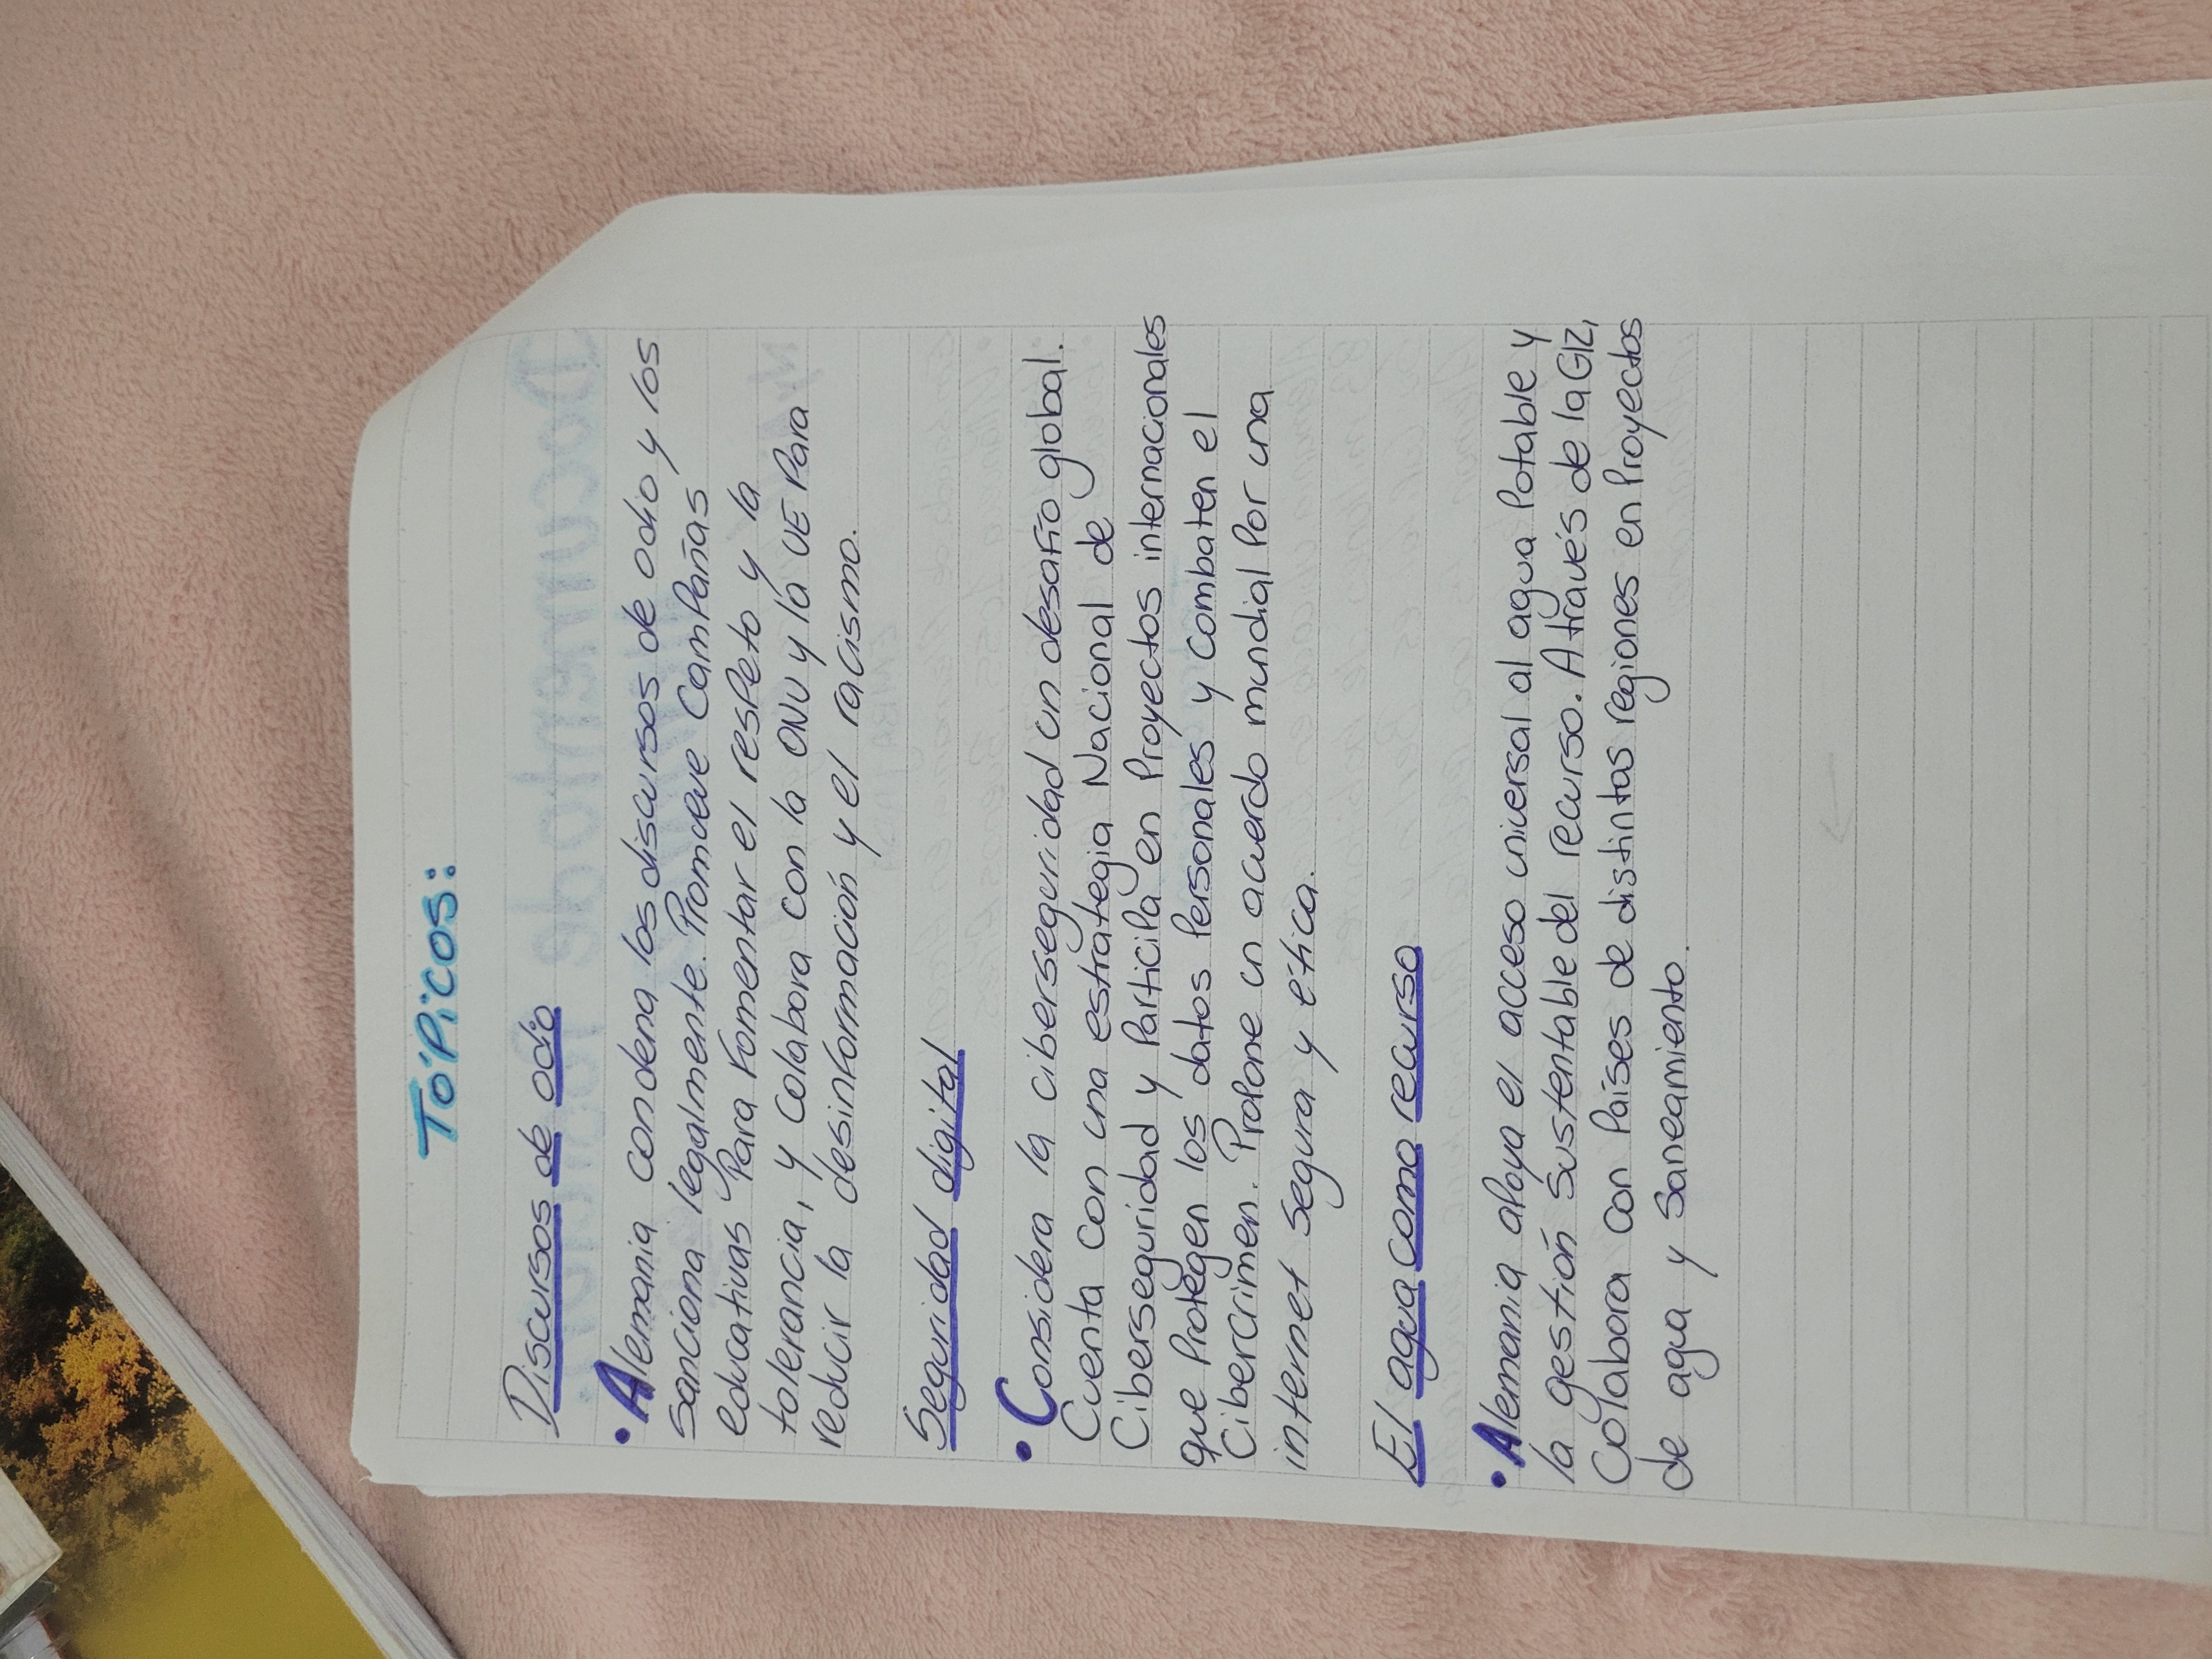 Tópicos:
Discursos de odio
• Alemania condena los discursos de odio y los
sanciona legalmente. Promueve campañas
educativas para fomentar el respeto y la
tolerancia, y colabora con la ONU y la UE para
reducir la desinformación y el racismo.
Seguridad digital
• Considera la ciberseguridad un desafío global.
Cuenta con una estrategia Nacional de
Ciberseguridad y participa en proyectos internacionales
que protegen los datos personales y combaten el
cibercrimen. Propone un acuerdo mundial por una
internet segura y ética.
El agua como recurso
• Alemania apoya el acceso universal al agua potable y
la gestión sustentable del recurso. A través de la GIZ,
colabora con países de distintas regiones en proyectos
de agua y saneamiento.